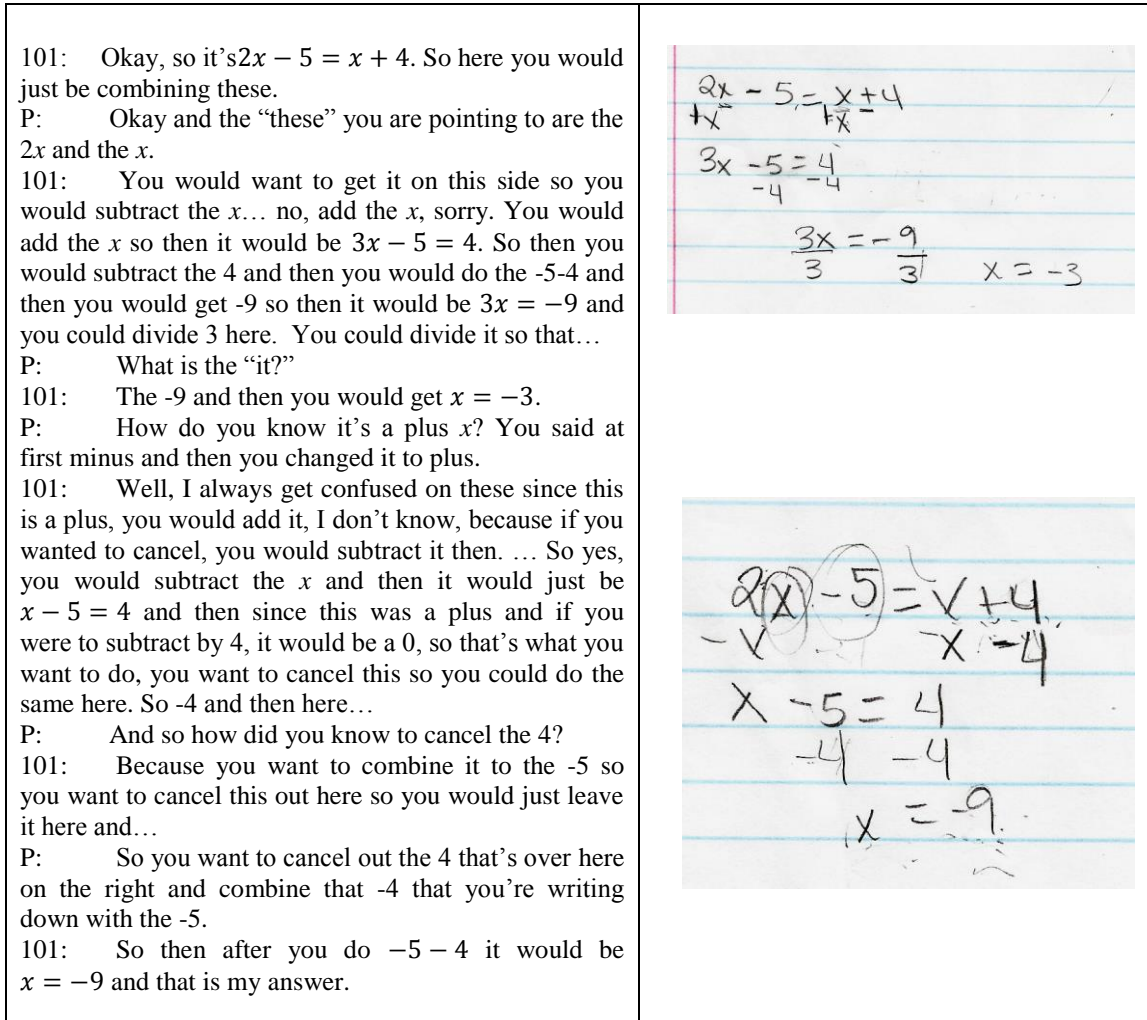 101: Okay, so it's2x − 5 = x + 4. So here you would
just be combining these.
P: Okay and the “these” you are pointing to are the
2x and the x.
101: You would want to get it on this side so you
would subtract the x… no, add the x, sorry. You would
add the x so then it would be 3x − 5 = 4. So then you
would subtract the 4 and then you would do the -5-4 and
then you would get -9 so then it would be 3x = −9 and
you could divide 3 here. You could divide it so that…
P: What is the “it?”
101: The -9 and then you would get x = −3.
P: How do you know it's a plus x? You said at
first minus and then you changed it to plus.
101: Well, I always get confused on these since this
is a plus, you would add it, I don't know, because if you
wanted to cancel, you would subtract it then. … So yes,
you would subtract the x and then it would just be
x − 5 = 4 and then since this was a plus and if you
were to subtract by 4, it would be a 0, so that's what you
want to do, you want to cancel this so you could do the
same here. So -4 and then here…
P: And so how did you know to cancel the 4?
101: Because you want to combine it to the -5 so
you want to cancel this out here so you would just leave
it here and…
P: So you want to cancel out the 4 that's over here
on the right and combine that -4 that you're writing
down with the -5.
101: So then after you do −5 − 4 it would be
x = −9 and that is my answer.
2x - 5 = x + 4
+x +x
3x - 5 = 4
-4 -4
3x = - 9
3 3 x = -3
2x - 5 = x + 4
-x -x -4
x - 5 = 4
-4 -4
x = -9